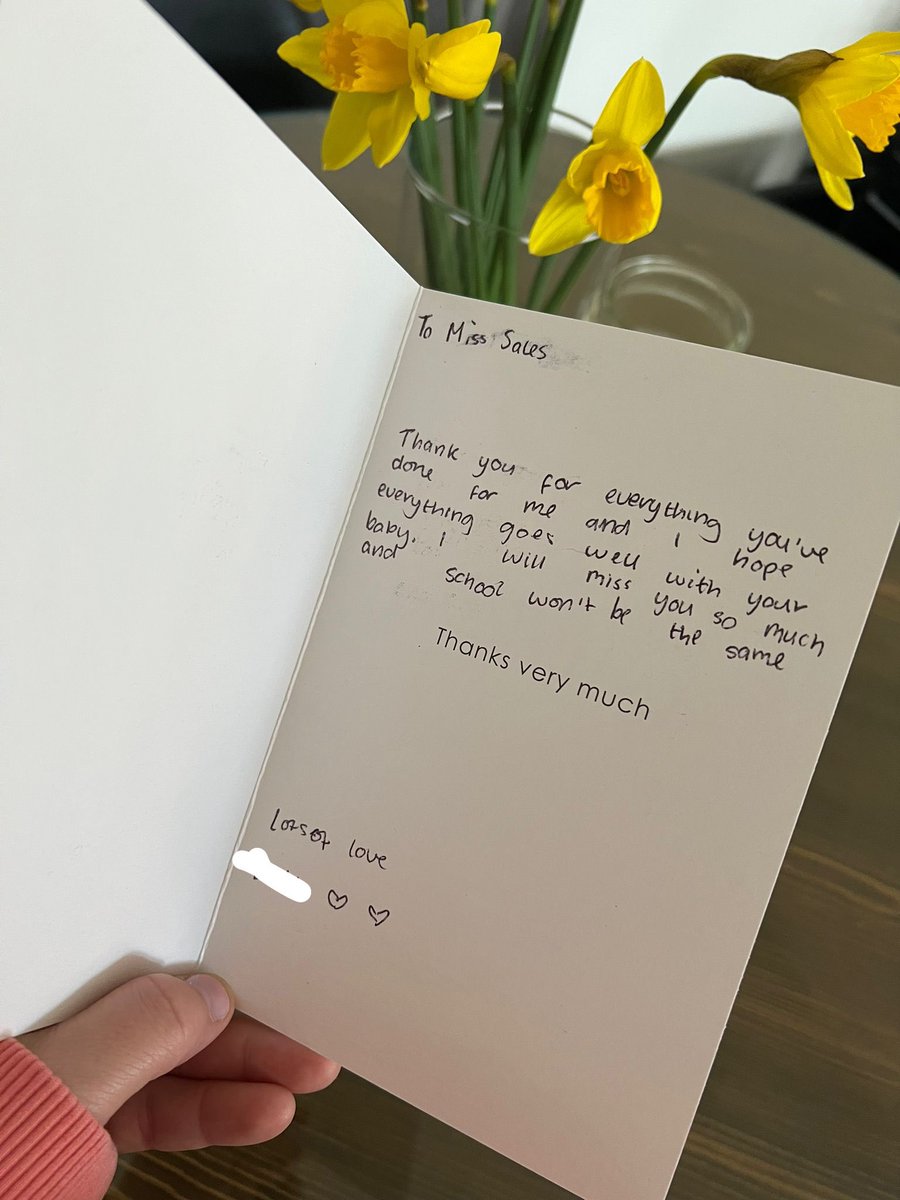 To Miss Sales
Thank you for everything you've
done for me and I hope
everything goes well with your
baby. I will miss you so much
and school won't be the same
Thanks very much
lots of love
♡ ♡